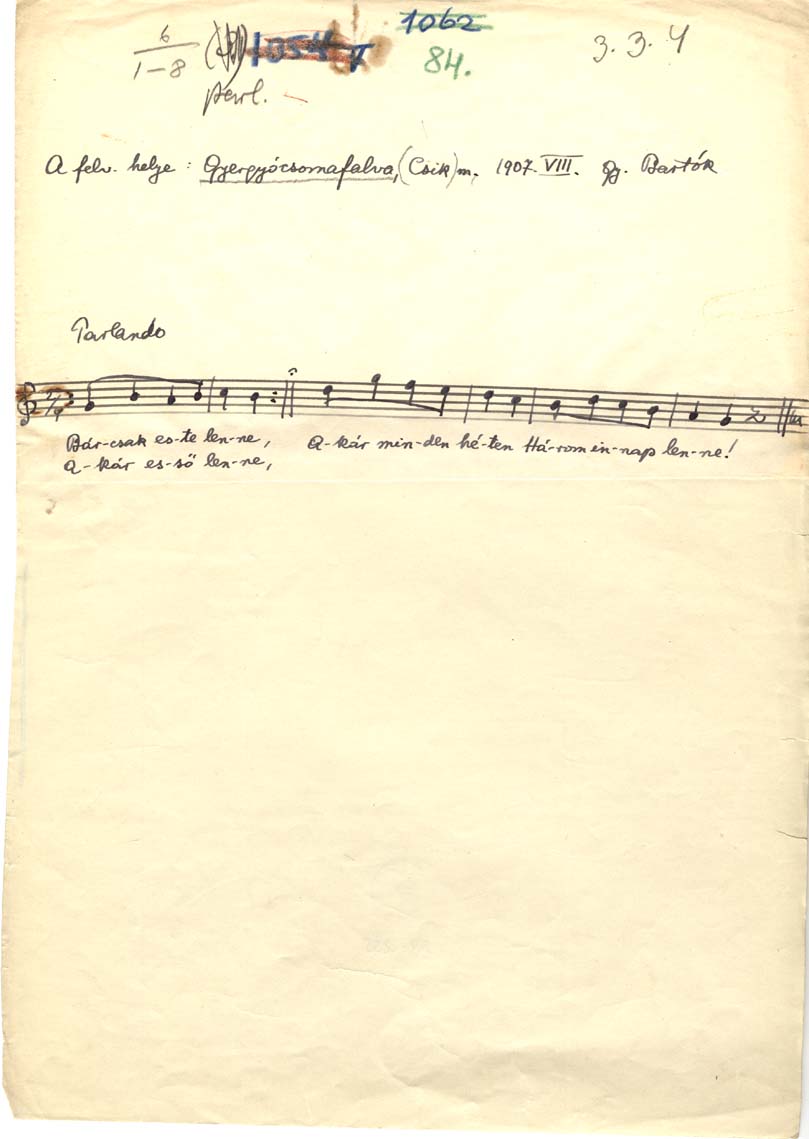 6
1-8
1062
84.
3. 3. 4
parl.
A felv. helye : Gyergyócsomafalva, (Csik) m. 1907. VIII. Gy. Bartók
Parlando
Bár-csak es-te len-ne, A-kár min-den hé-ten Há-rom in-nap len-ne!
A-kár es-ső len-ne,